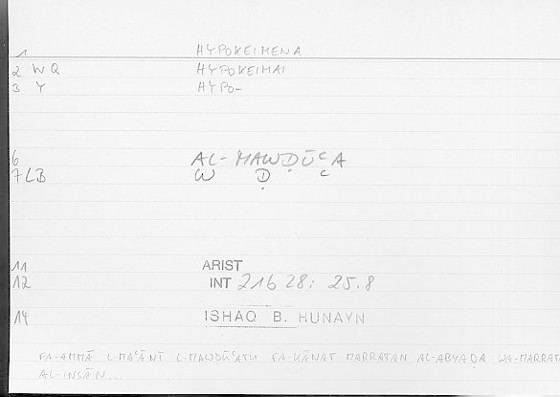 1 HYPOKEIMENA
2 WQ HYPOKEIMAI
3 Y HYPO-
6 AL-MAWḌŪʿA
7 LB W Ḍ ʿ
11 ARIST
12 INT 216 28: 25.8
14 ISHAQ B. HUNAYN
FA-AMMĀ L-MAʿĀNĪ L-MAWḌŪʿATU FA-KĀNAT MARRATAN AL-ABYAḌA WA-MARRAT
AL-INSĀN...